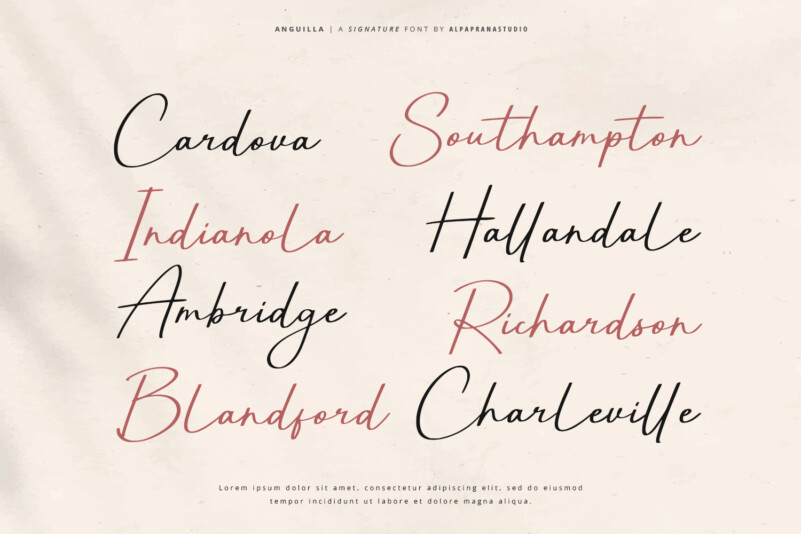 ANGUILLA | A SIGNATURE FONT BY ALPAPRANASTUDIO
Cardova Southampton
Indianola Hallandale
Ambridge Richardson
Blandford Charleville
Lorem ipsum dolor sit amet, consectetur adipiscing elit, sed do eiusmod
tempor incididunt ut labore et dolore magna aliqua.